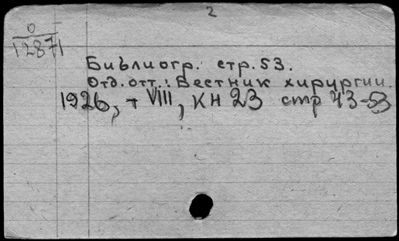 2
0
12871
Библиогр. стр. 53.
Отд. отт.: Вестник хирургии.
1926, т VIII, КН 23 стр 43-53